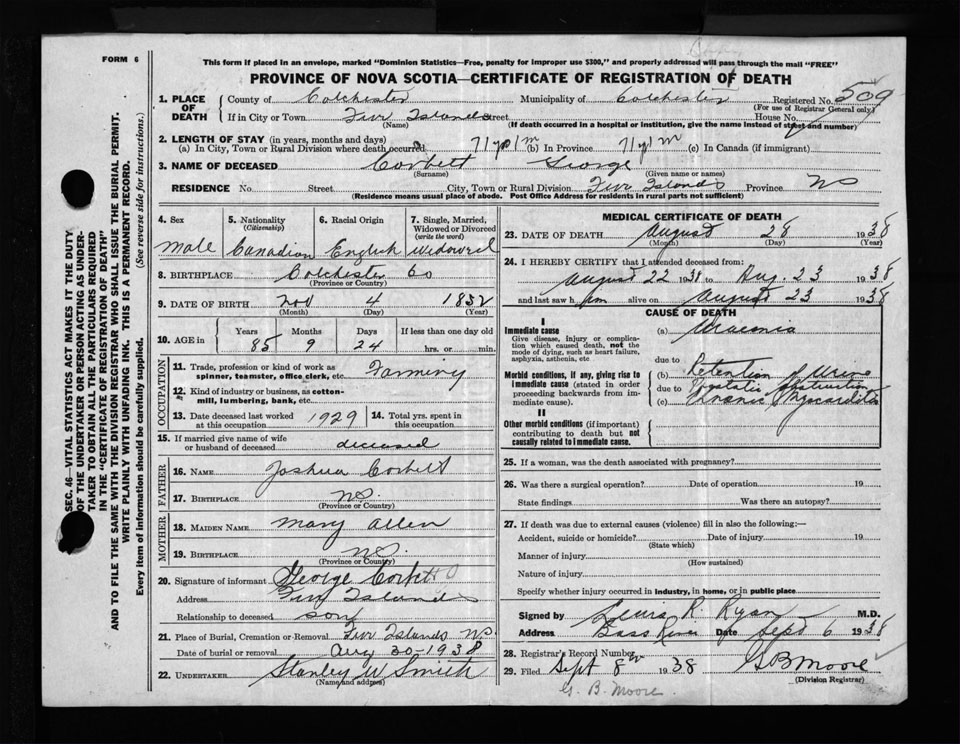 FORM 6
This form if placed in an envelope, marked "Dominion Statistics—Free, penalty for improper use $300," and properly addressed will pass through the mail "FREE"
PROVINCE OF NOVA SCOTIA—CERTIFICATE OF REGISTRATION OF DEATH
SEC. 46—VITAL STATISTICS ACT MAKES IT THE DUTY
OF THE UNDERTAKER OR PERSON ACTING AS UNDER-
TAKER TO OBTAIN ALL THE PARTICULARS REQUIRED
IN THE "CERTIFICATE OF REGISTRATION OF DEATH"
AND TO FILE THE SAME WITH THE DIVISION REGISTRAR WHO SHALL ISSUE THE BURIAL PERMIT.
WRITE PLAINLY WITH UNFADING INK. THIS IS A PERMANENT RECORD.
Every item of information should be carefully supplied. (See reverse side for instructions.)
1. PLACE OF DEATH County of Colchester Municipality of Colchester Registered No. 509
(For use of Registrar General only)
If in City or Town Five Islands Street House No.
(Name) (If death occurred in a hospital or institution, give the name instead of street and number)
2. LENGTH OF STAY (in years, months and days)
(a) In City, Town or Rural Division where death occurred (b) In Province (c) In Canada (if immigrant)
3. NAME OF DECEASED Corbett George
(Surname) (Given name or names)
RESIDENCE No. Street City, Town or Rural Division Five Islands Province NS
(Residence means usual place of abode. Post Office Address for residents in rural parts not sufficient)
4. Sex Male
5. Nationality (Citizenship) Canadian
6. Racial Origin English
7. Single, Married, Widowed or Divorced (write the word) Widowed
8. BIRTHPLACE Colchester Co
(Province or Country)
9. DATE OF BIRTH Nov 4 1852
(Month) (Day) (Year)
10. AGE in Years Months Days If less than one day old
85 9 24 hrs. or min.
OCCUPATION
11. Trade, profession or kind of work as spinner, teamster, office clerk, etc. Farming
12. Kind of industry or business, as cotton-mill, lumbering, bank, etc.
13. Date deceased last worked at this occupation 1929
14. Total yrs. spent in this occupation
15. If married give name of wife or husband of deceased deceased
FATHER
16. NAME Joshua Corbett
17. BIRTHPLACE NS.
(Province or Country)
MOTHER
18. MAIDEN NAME Mary Allen
19. BIRTHPLACE NS.
(Province or Country)
20. Signature of informant George Corbett
Address Five Islands
Relationship to deceased son
21. Place of Burial, Cremation or Removal Five Islands NS
Date of burial or removal Aug 30-1938
22. UNDERTAKER Stanley W Smith
(Name and address)
MEDICAL CERTIFICATE OF DEATH
23. DATE OF DEATH August 28 1938
(Month) (Day) (Year)
24. I HEREBY CERTIFY that I attended deceased from:
August 22 1938 to Aug. 23 1938
and last saw him alive on August 23 1938
CAUSE OF DEATH
I
Immediate cause
Give disease, injury or complication which caused death, not the mode of dying, such as heart failure, asphyxia, asthenia, etc
(a) Uraemia
due to
Morbid conditions, if any, giving rise to immediate cause (stated in order proceeding backwards from immediate cause).
(b) Retention of Urine
due to Prostatic obstruction
(c) Chronic Myocarditis
II
Other morbid conditions (if important) contributing to death but not causally related to immediate cause.
25. If a woman, was the death associated with pregnancy?
26. Was there a surgical operation? Date of operation 19
State findings Was there an autopsy?
27. If death was due to external causes (violence) fill in also the following:—
Accident, suicide or homicide? Date of injury 19
(State which)
Manner of injury
(How sustained)
Nature of injury
Specify whether injury occurred in industry, in home, or in public place
Signed by R. Ryan M.D.
Address Bass River Date Sept 6 1938
28. Registrar's Record Number
29. Filed Sept 8th 1938 G B Moore
(Division Registrar)
G. B. Moore.